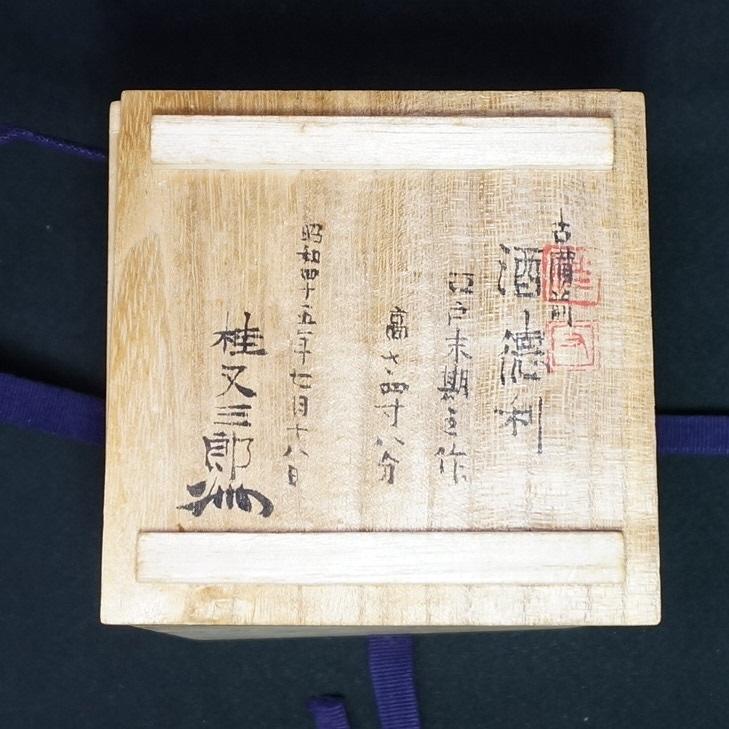 古備前
酒徳利
江戸末期之作
高さ四寸八分
昭和四十五年七月十八日
桂又三郎